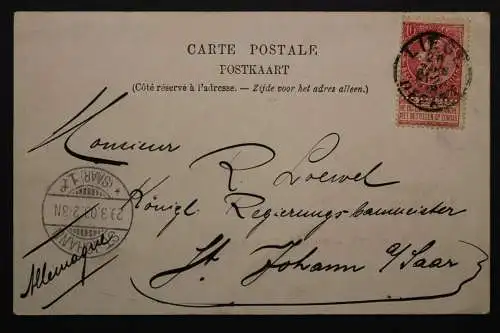 CARTE POSTALE
POSTKAART
(Côté réservé à l'adresse. — Zijde voor het adres alleen.)
LIEGE
Monsieur
R. Loewel
Königl. Regierungsbaumeister
St. Johann a/Saar
Allemagne
ST. JOHANN
23.3.03. 2-3N
* (SAAR) 1 *